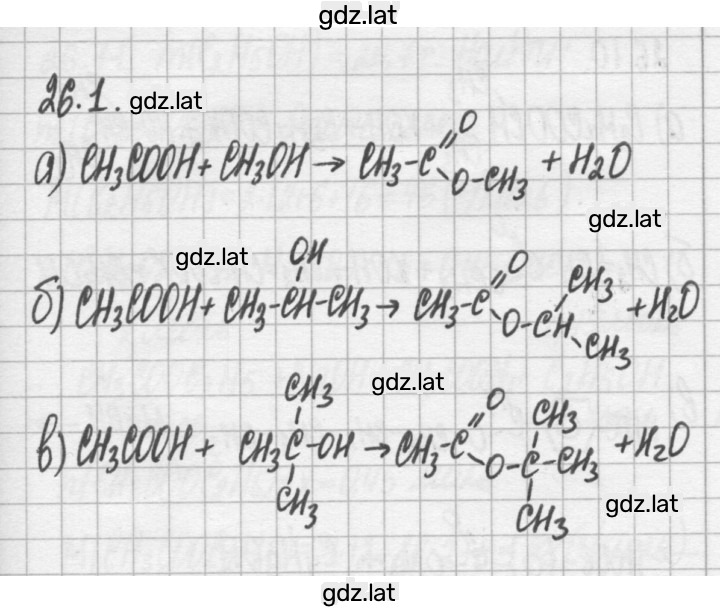 gdz.lat
26.1. gdz.lat
а) CH₃COOH + CH₃OH → CH₃-C(=O)-O-CH₃ + H₂O
gdz.lat
gdz.lat
OH
б) CH₃COOH + CH₃-CH-CH₃ → CH₃-C(=O)-O-CH(CH₃)-CH₃ + H₂O
CH₃ gdz.lat
в) CH₃COOH + CH₃C-OH → CH₃-C(=O)-O-C(CH₃)(CH₃)-CH₃ + H₂O
CH₃
gdz.lat
gdz.lat